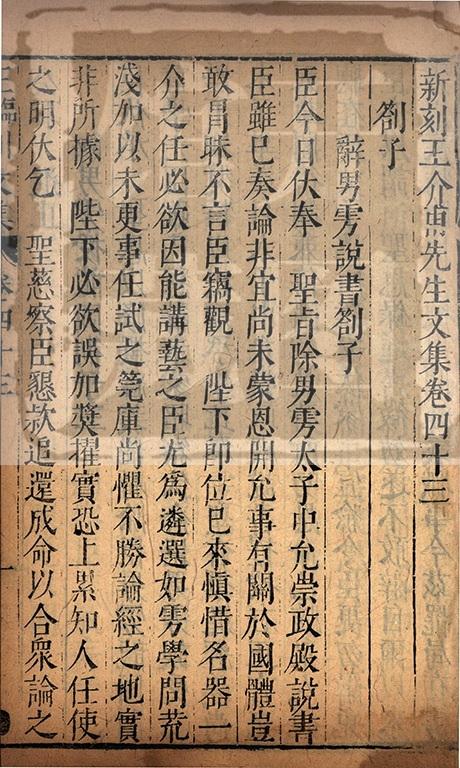 新刻王介甫先生文集卷四十三
劄子
辭男雱說書劄子
臣今日伏奉　聖旨除男雱太子中允崇政殿說書
臣雖已奏論非宜尚未蒙恩開允事有關於國體豈
敢冐昧不言臣竊觀　陛下卽位已來愼惜名器一
介之任必欲因能講藝之臣尤為遴選如雱學問荒
淺加以未更事任試之筦庫尚懼不勝論經之地實
非所據　陛下必欲誤加奬擢實恐上累知人任使
之明伏乞　聖慈察臣懇款追還成命以合衆論之
王臨川文集　卷四十三　一